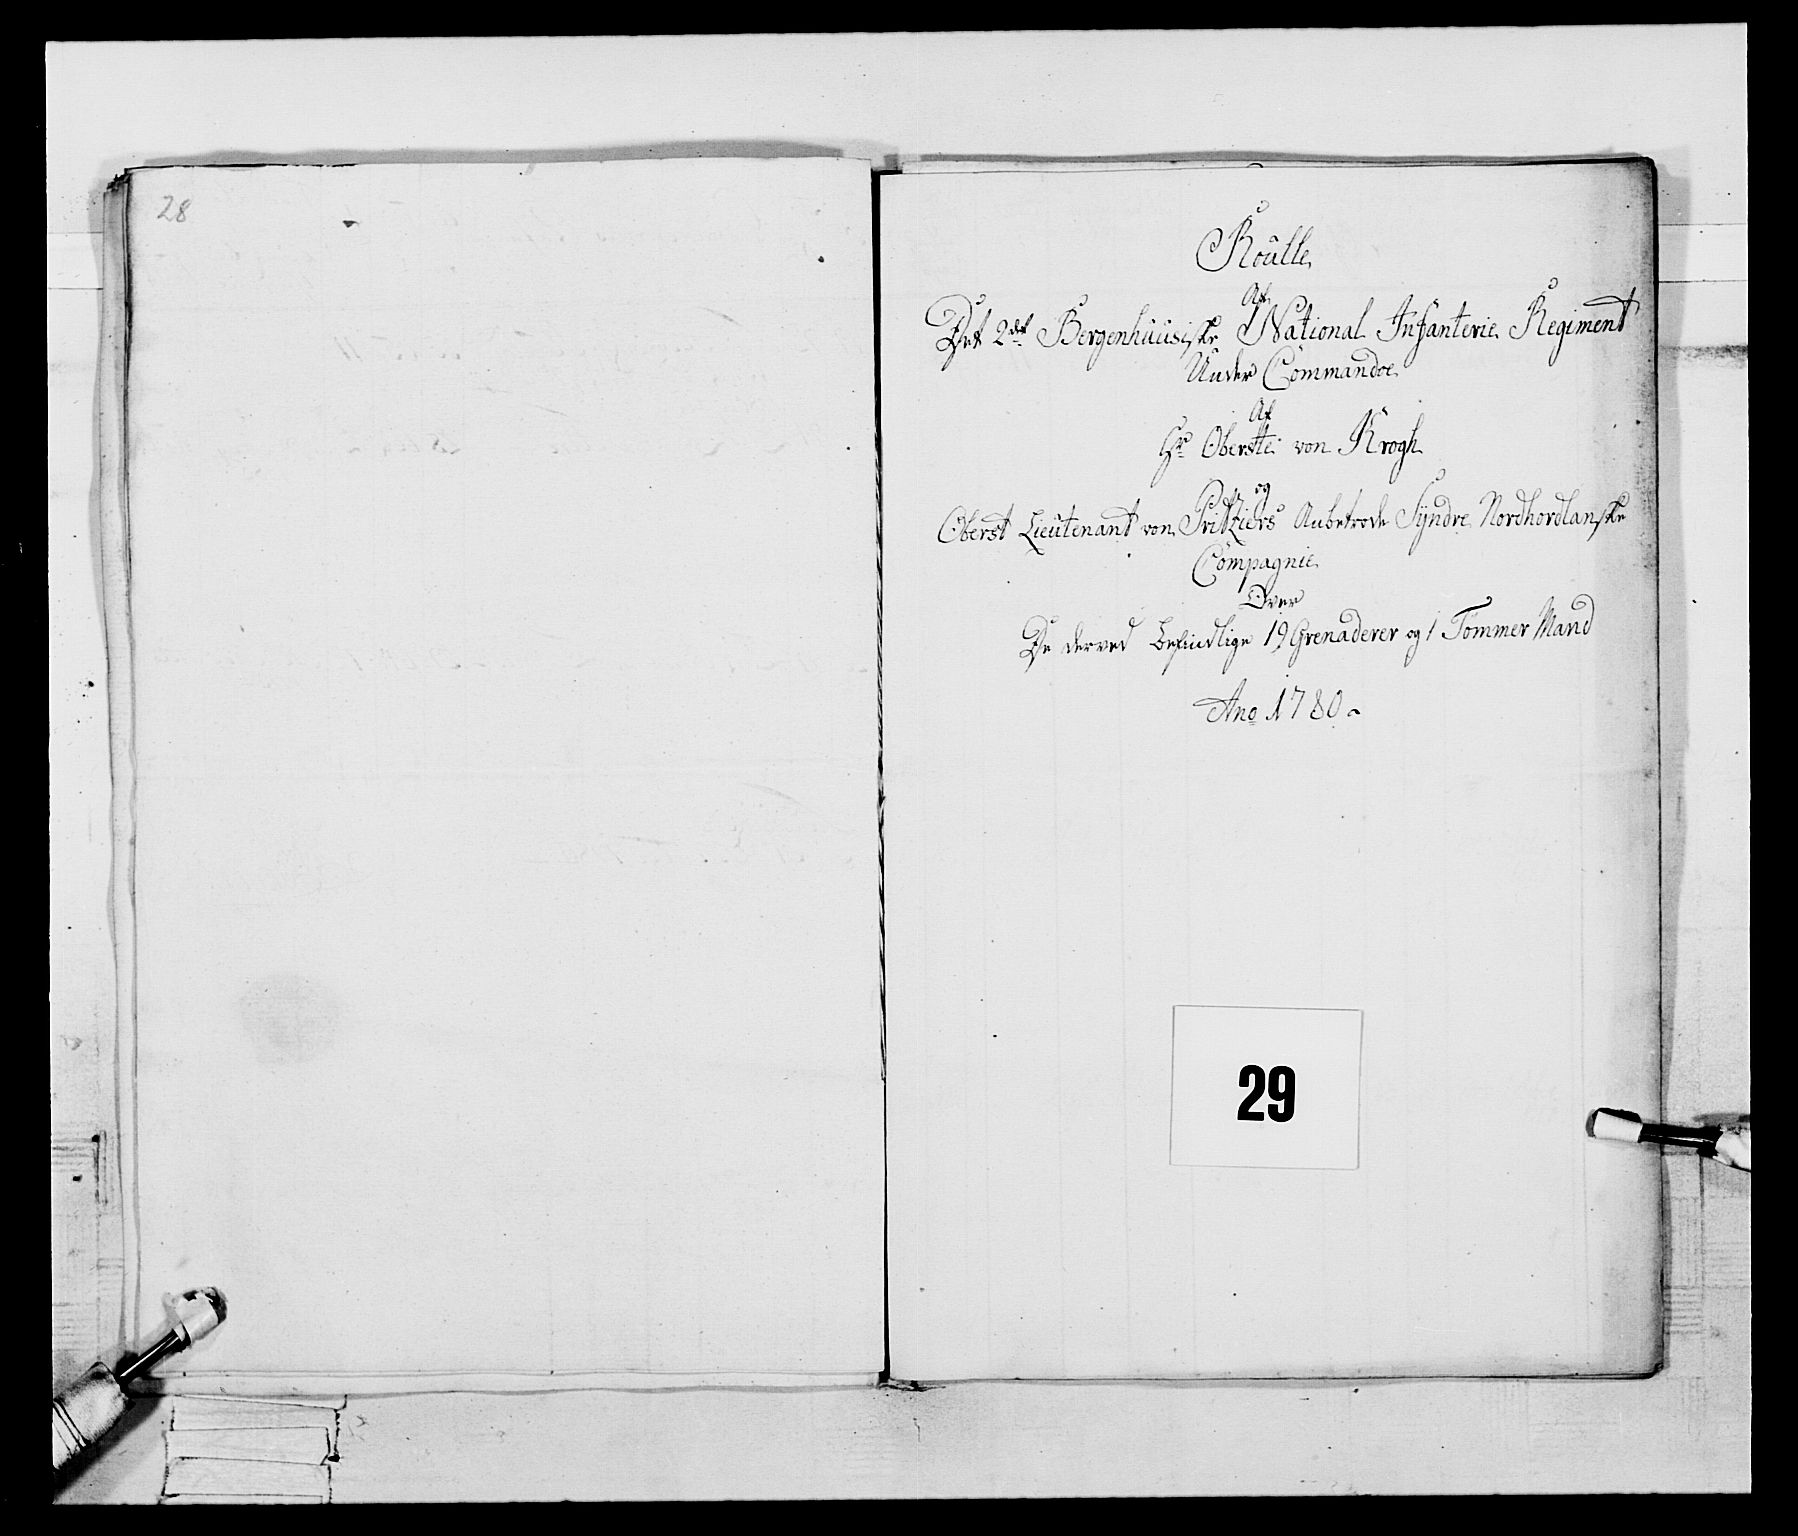 28
Roülle
Af
Det 2det Bergenhüüsiske National Infanterie Regiment
Under Commandoe
Af
Hr Oberste von Krogh
og
Oberst Lieütenant von Pritziers Anbetrode Syndre Nordhordlanske
Compagnie
Over
De derved befindlige 19 Grenaderer og 1 Tømmer Mand
Ano 1780
29